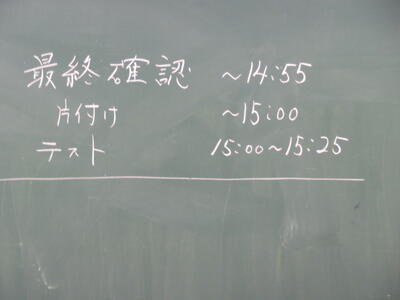 最終確認 ~14:55
片付け ~15:00
テスト 15:00~15:25